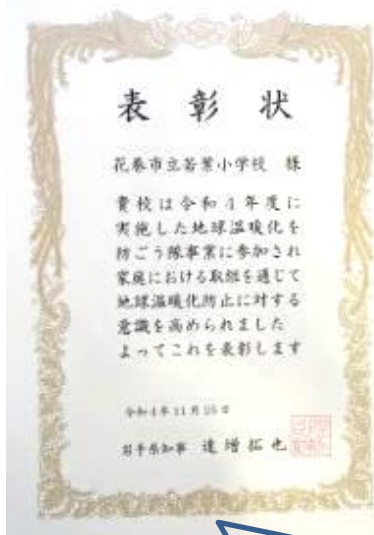 表彰状
花巻市立若葉小学校 様
貴校は令和4年度に
実施した地球温暖化を
防ごう隊事業に参加され
家庭における取組を通じて
地球温暖化防止に対する
意識を高められました
よってこれを表彰します
令和4年11月 日
岩手県知事 達増拓也